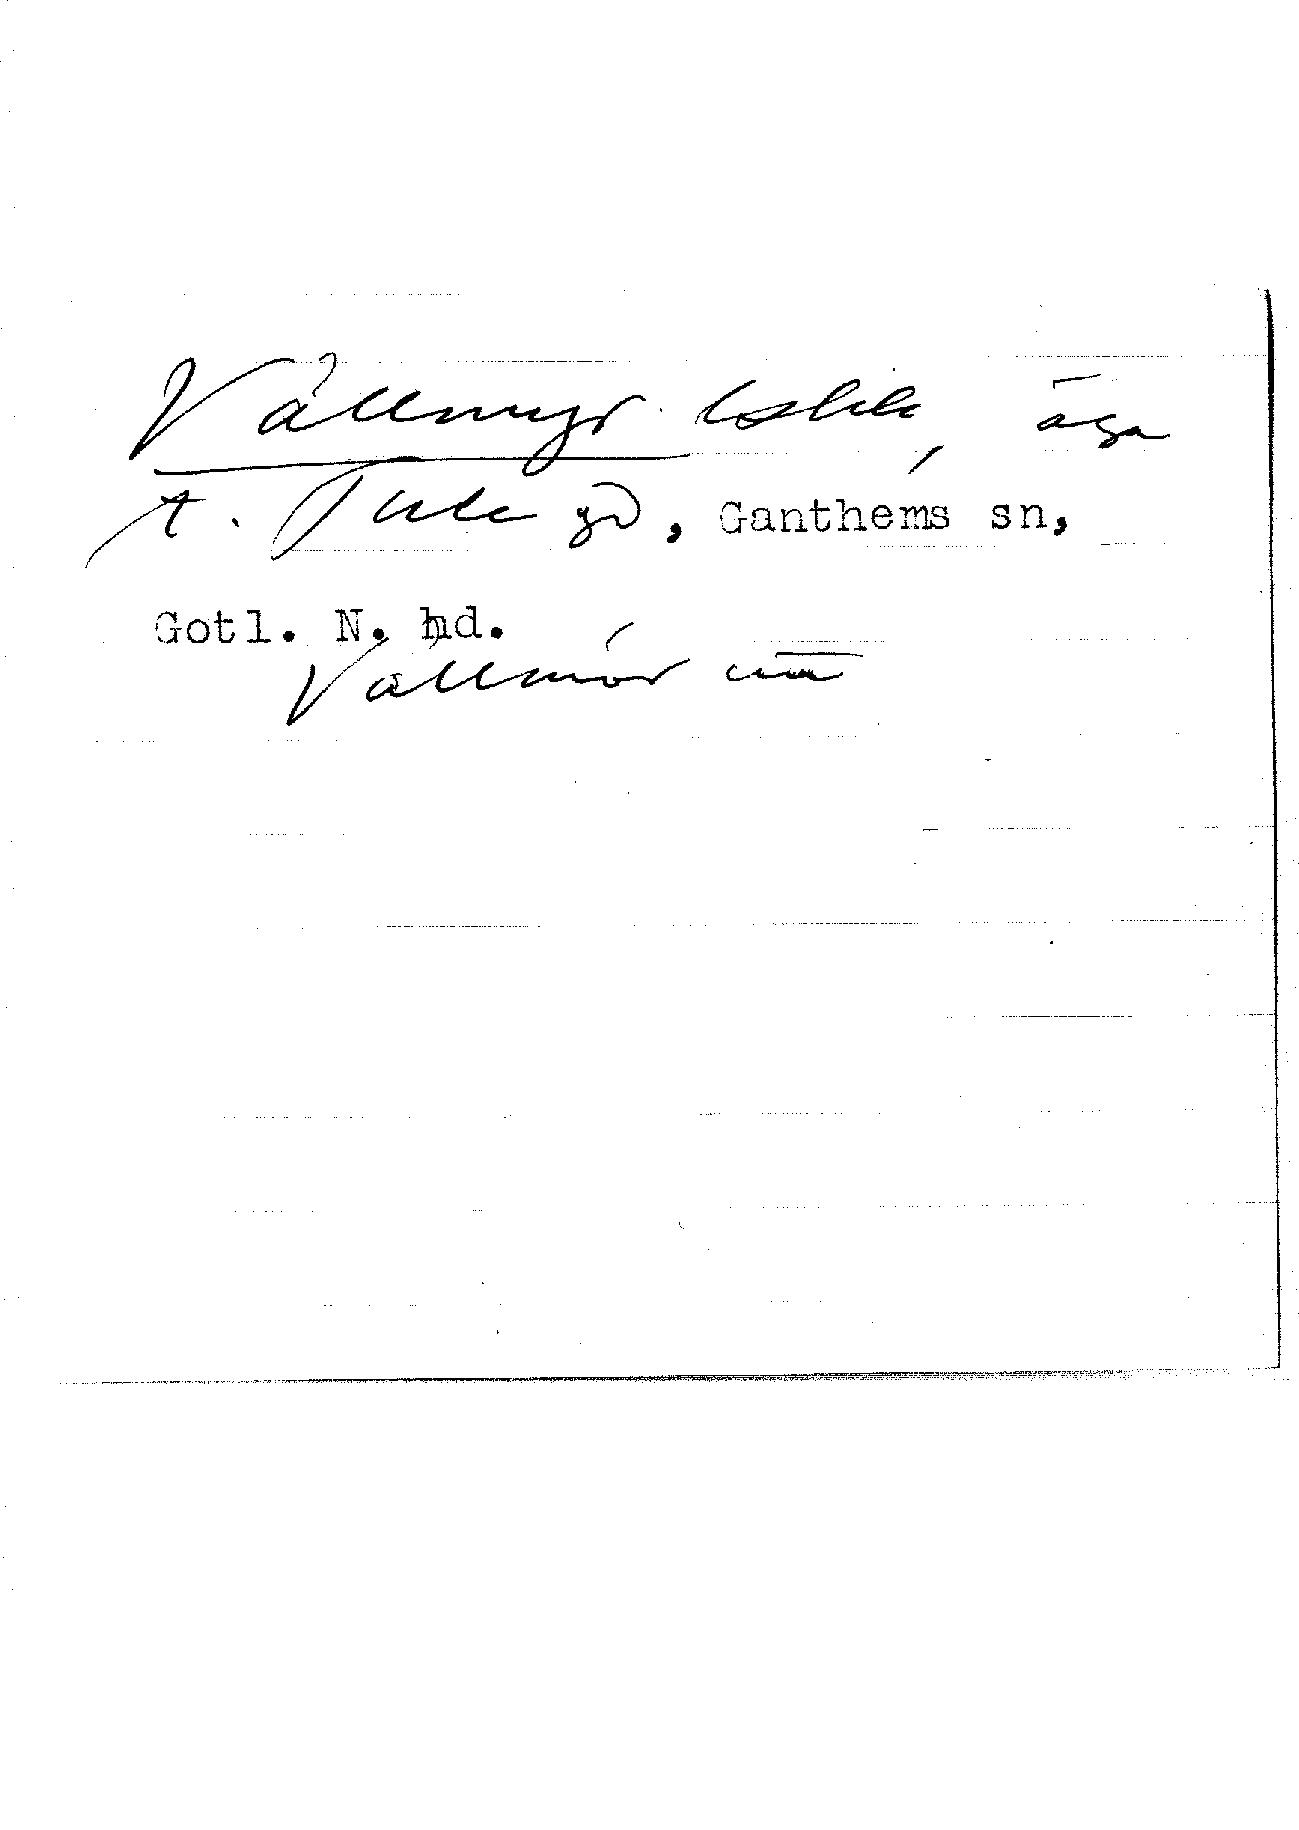 Vällmyr lskk, äga
t. Tule gd, Ganthems sn,
Gotl. N. hd.
Vallmör